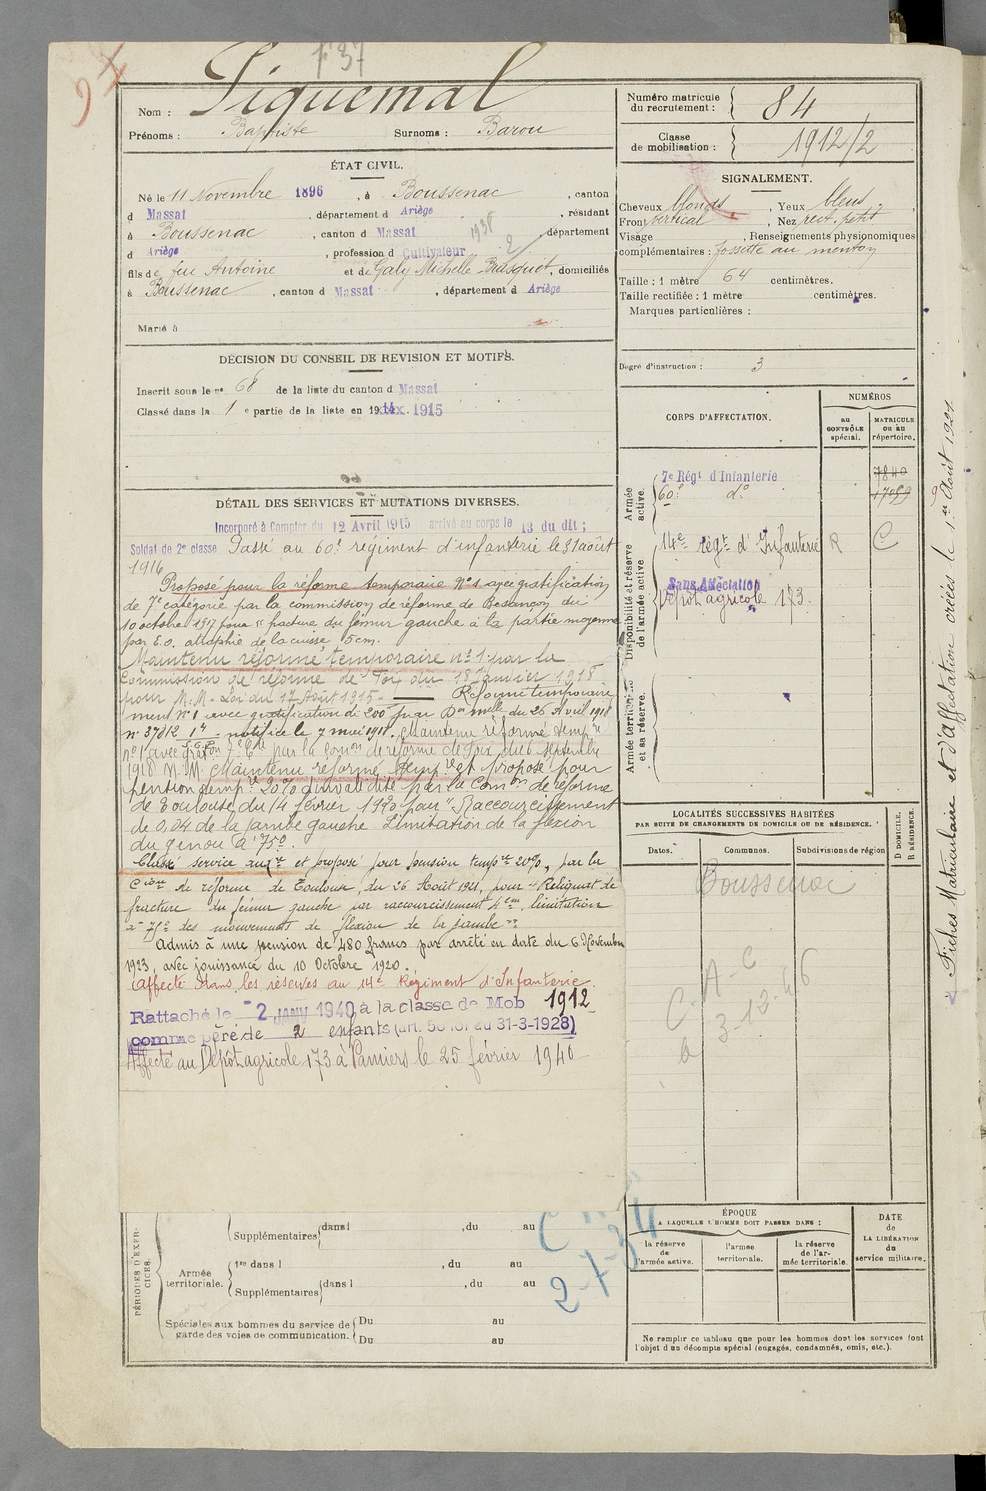 F 37
Piquemal
Nom :
Prénoms : Baptiste Surnoms : Barou
Numéro matricule du recrutement : 84
Classe de mobilisation : 1912/2
ÉTAT CIVIL.
Né le 11 Novembre 1896, à Boussenac, canton
d Massat, département d Ariège, résidant
à Boussenac, canton d Massat, département
d Ariège, profession d Cultivateur
fils de feu Antoine et de Galy Michelle, domiciliés
à Boussenac, canton d Massat, département d Ariège
Marié à
SIGNALEMENT.
Cheveux blonds, Yeux bleus
Front vertical, Nez rect. petit
Visage , Renseignements physionomiques
complémentaires : fossette au menton
Taille : 1 mètre 64 centimètres.
Taille rectifiée : 1 mètre centimètres.
Marques particulières :
Degré d'instruction : 3
DÉCISION DU CONSEIL DE REVISION ET MOTIFS.
Inscrit sous le no 68 de la liste du canton d Massat
Classé dans la 1 e partie de la liste en 19 1915
DÉTAIL DES SERVICES ET MUTATIONS DIVERSES.
Incorporé à Compter du 12 Avril 1915 arrivé au corps le 13 du dit ;
Soldat de 2e classe Passé au 60e régiment d'infanterie le 31 août
1916
Proposé pour la réforme temporaire No 1 avec gratification
de 7e catégorie par la commission de réforme de Besançon du
10 octobre 1917 pour "fracture du fémur gauche à la partie moyenne
par E.O. atrophie de la cuisse, 5 cm.
Maintenu réformé temporaire no 1 par la
Commission de réforme de Foix du 18 Janvier 1918
pour M.M. Loi du 17 Août 1915 - Réformé temporaire
ment No 1 avec gratification de 200 f par Don melle du 26 Avril 1918
notifiée le 7 mai 1918. Maintenu réformé temp re
no 1 avec Graton 7e Cie par la Comon de réforme de Foix du 6 Septembre
1918 M.M. Maintenu réformé temp re et proposé pour
pension temp re 20% d'invalidité par la Comon de réforme
de Toulouse du 14 février 1920 pour "Raccourcissement
de 0,04 de la jambe gauche. Limitation de la flexion
du genou à 75o.
Classé service auxre et proposé pour pension tempre 20%, par la
Cion de réforme de Toulouse, du 26 Août 1921, pour "Reliquat de
fracture du fémur gauche par raccourcissement 4 cm, limitation
à 75o des mouvements de flexion de la jambe"
Admis à une pension de 480 francs par arrêté en date du 6 Novembre
1923, avec jouissance du 10 Octobre 1920.
Affecté dans les réserves au 14e Régiment d'Infanterie.
Rattaché le -2 JANV 1940 à la classe de Mob 1912
comme père de 2 enfants (art. 58 loi du 31-3-1928)
Affecté au Dépôt agricole 173 à Pamiers le 25 février 1940
CORPS D'AFFECTATION.
NUMÉROS
au CONTRÔLE spécial.
MATRICULE ou au répertoire.
Armée active.
7e Régt d'Infanterie 7840
60e do 17059
Disponibilité et réserve de l'armée active.
14e régt d'Infanterie R C
Sans Affectation
Dépôt agricole 173
Armée territoriale et sa réserve.
LOCALITÉS SUCCESSIVES HABITÉES
PAR SUITE DE CHANGEMENTS DE DOMICILE OU DE RÉSIDENCE.
D DOMICILE, R RÉSIDENCE
Dates. Communes. Subdivisions de région
Boussenac
A-C
C. 3-12-46
Fiches Matriculaire et d'Affectation créées le 1er Août 1927
PÉRIODES D'EXERCICES.
Supplémentaires dans l , du au
Armée territoriale.
1re dans l , du au
Supplémentaires dans l , du au
Spéciales aux hommes du service de garde des voies de communication.
Du au
Du au
ÉPOQUE
A LAQUELLE L'HOMME DOIT PASSER DANS :
la réserve de l'armée active.
l'armée territoriale.
la réserve de l'armée territoriale.
DATE de LA LIBÉRATION du service militaire.
Ne remplir ce tableau que pour les hommes dont les services font
l'objet d'un décompte spécial (engagés, condamnés, omis, etc.).